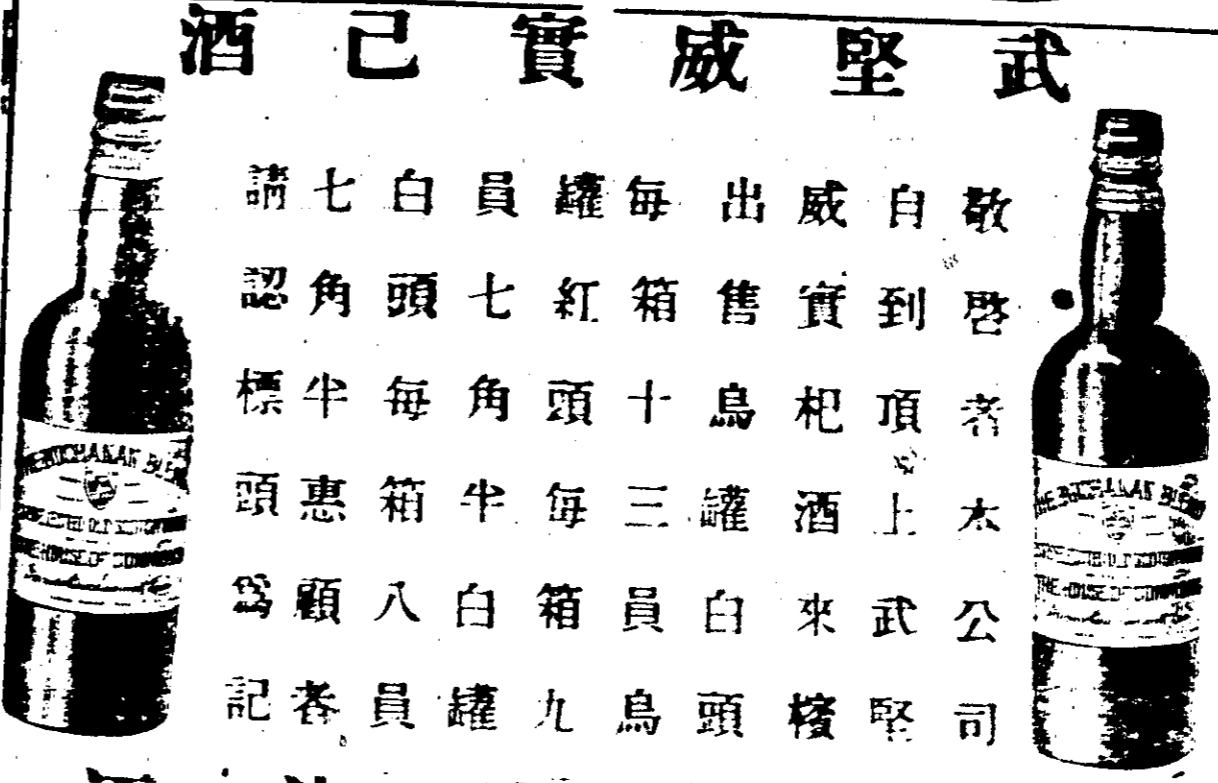 武堅威實己酒
敬啓者本公司
自到頂上武堅
威實杷酒來檳
出售烏罐白頭
每箱十三員烏
罐紅頭每箱九
員七角半白罐
白頭每箱八員
七角半惠顧者
請認標頭爲記
THE BUCHANAN BLEND
THE HOUSE OF COMMONS
THE BUCHANAN BLEND
THE HOUSE OF COMMONS